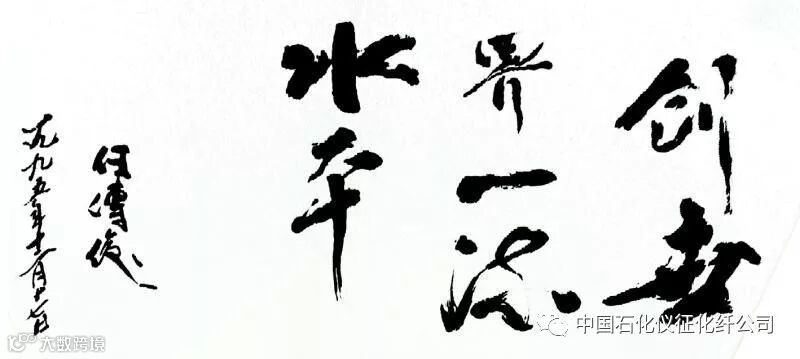 创世
界一流
水平
任傳俊
一九九五年
中国石化仪征化纤公司
大数跨境